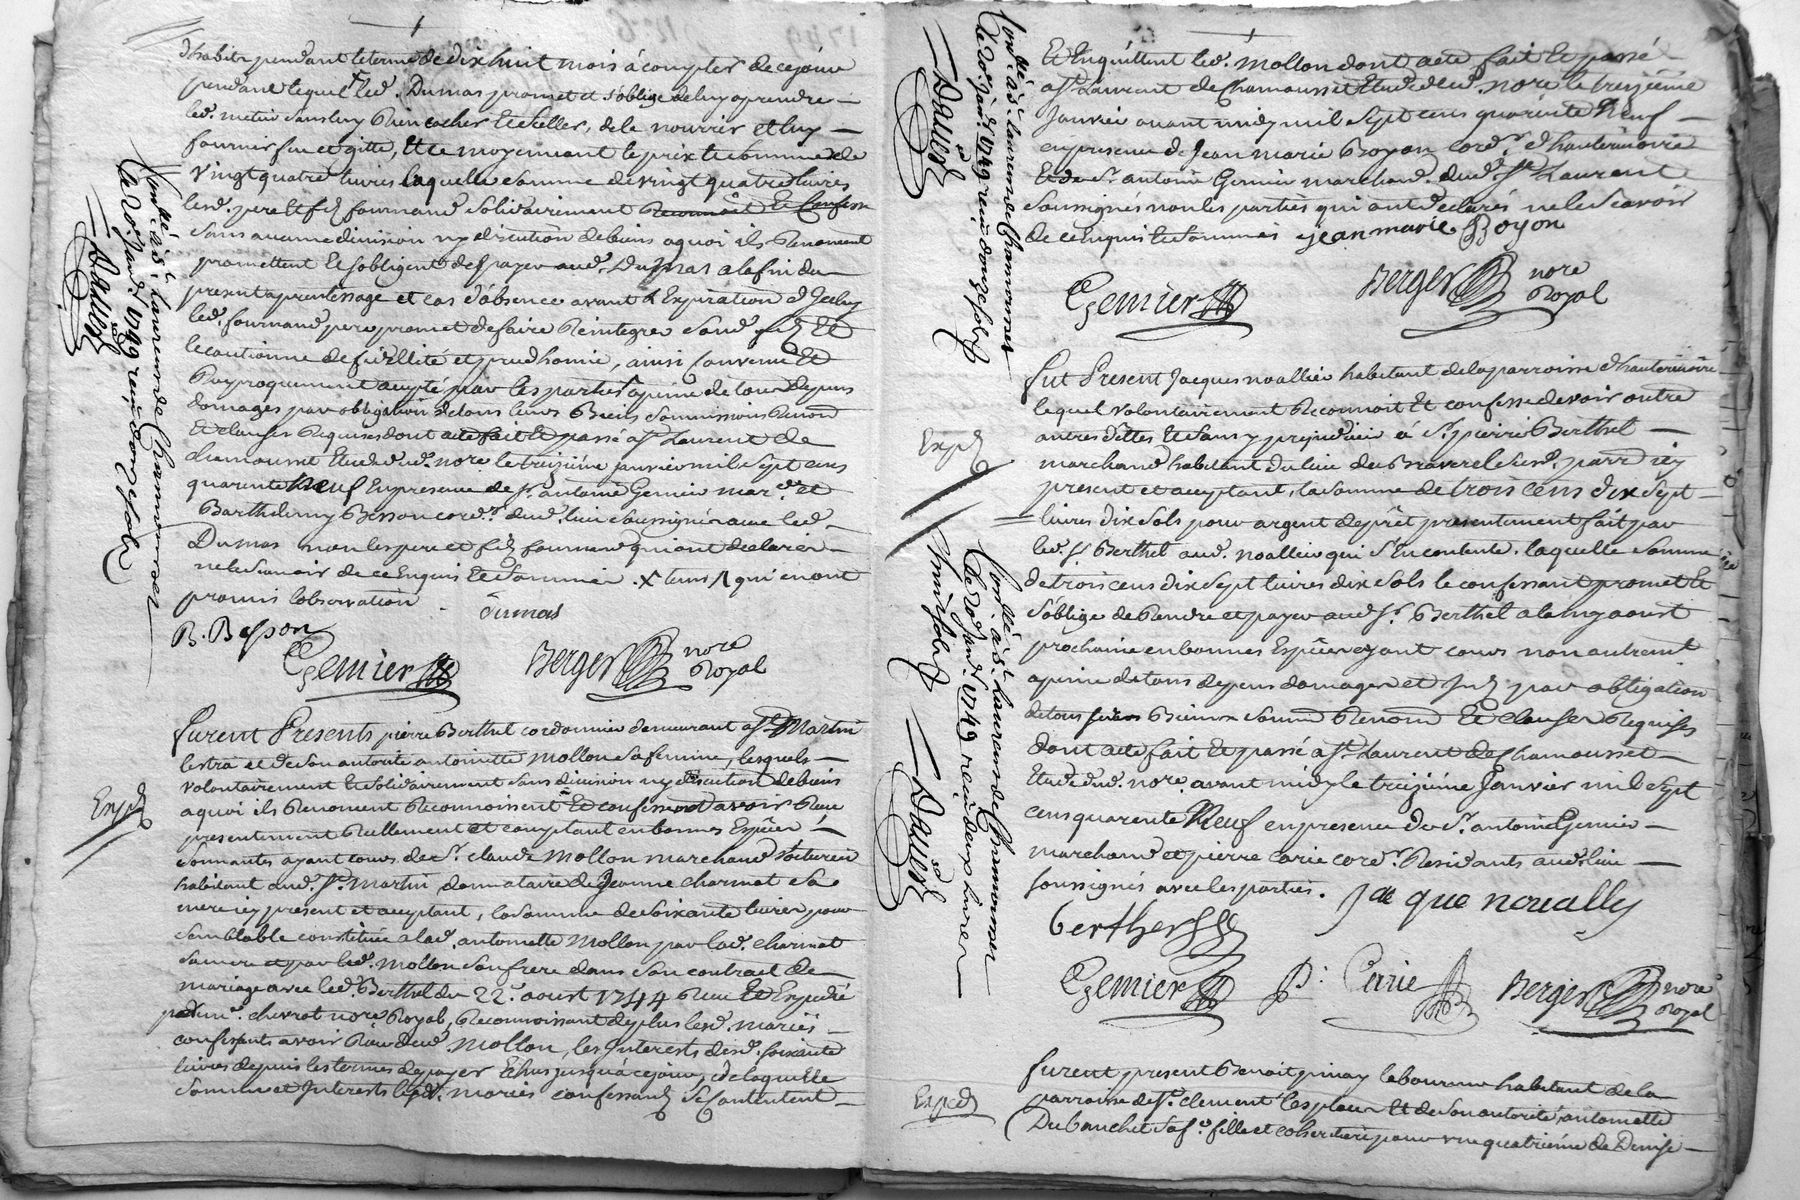 d'habits pendant le terme de dix huit mois à compter de ce jour
pendant lequel led. Dumas promet et s'oblige de luy aprendre
led. metier sans luy Rien cacher et celler, de le nourrir et luy
fournir feu et gitte, Et ce moyennant le prix et somme de
vingt quatre livres laquelle somme de vingt quatre livres
lesd. pere et fils fournand solidairement Reconnoit Et Confesse
sans aucune division ny discution de biens a quoi ils Renoncent
promettent Et s'obligent de payer aud. Dumas a la fin du
present aprentissage et cas d'absence avant l'Expiration d'Iceluy
led. fournand pere promet de faire Reintegrer sond. fils Et
le cautionne de fidellité et prudhomie, ainsi Convenu Et
Reciproquement accepté par les parties a peine de tous depens
domages par obligation de tous leurs Biens soumissions Renon
Et clauses Requises dont acte fait Et passé a St Laurent de
chamousset Etude dud. nore le treizième janvier mil sept cens
quarente Neuf En presence de sr. antoine Gemier mard. et
Barthelemy Besson cord.r dud. lieu soussignés avec led.
Dumas non les pere et fils fournand qui ont declarés
ne le scavoir de ce Enquis Et sommés. x tems / qui en ont
promis l'observation
dumas
B. Besson
Gemier
Berger nore
Royal
Controllé a St. Laurent de Chamousset
le 20. janv. 1749 reçu douze sols
Dauest
Furent Presents pierre Berthet cordonnier demeurant a St Martin
lestra et de son autorité antoinette Mollon sa femme, lesquels
volontairement et solidairement sans division ny discution de biens
a quoi ils Renoncent Reconnoissent Et confessent avoir Reçu
presentement Réellement et comptant en bonnes Espèces
sonnantes ayant cours de sr. claude Mollon marchand voiturier
habitant aud. St. Martin, donnataire de Jeanne charmat sa
mere icy present et acceptant, la somme de soixante livres pour
semblable constituée a lad. antoinette Mollon par lad. charmat
sa mere et par led. Mollon son frere dans son contract de
mariage avec led. Berthet du 22e. aoust 1744 Reçu Et Expedié
par me. chevrot nore Royal, Reconnoissant de plus lesd. mariés
confessants avoir Reçu dud. Mollon, les Interests desd. soixante
livres depuis les termes de payer Echus jusqu'a ce jour, de laquelle
somme et Interests lesd. mariés confessants se contentent
Exped
Et En quittent led. Mollon dont acte fait Et passé
a St Laurent de Chamousset Etude dud. nore le treizième
Janvier avant midy mil sept cens quarente Neuf
en presence de Jean marie Boyon cord.r d'hauterivoire
Et de sr. antoine Gemier marchand dud. St Laurent
soussignés non les parties qui ont declarés ne le scavoir
de ce Enquis Et sommés jean marie Boyon
Gemier
Berger nore
Royal
Controllé a St. Laurent de Chamousset
le 20. janv. 1749 reçu douze sols
Dauest
Fut Present Jacques noallier habitant de la parroisse d'hauterivoire
lequel volontairement Reconnoit Et confesse devoir outre
autres dettes Et sans y prejudicier à sr. pierre Berthet
marchand habitant du lieu de parr icy
present et acceptant, la somme de trois cens dix sept
livres dix sols pour argent de prêt presentement fait par
led. sr Berthet aud. noallier qui s'En contente. laquelle somme
de trois cens dix sept livres dix sols le confessant promet Et
s'oblige de Rendre et payer aud. sr. Berthet a la my aoust
prochaine en bonnes Espèces ayant cours non autrement
a peine de tous depens domages et Int. par obligation
de tous ses Biens soumd Renond Et clauses Requises
dont acte fait Et passé a St Laurent de Chamousset
Etude dud. nore avant midy le treizième Janvier mil sept
cens quarente Neuf en presence de sr. antoine Gemier
marchand et pierre Carie cord.r Residants aud. lieu
soussignés avec les parties. Jaque noually
berthet
Gemier
P. Carie
Berger nore
Royal
Exped
Controllé a St. Laurent de Chamousset
le 20. janv. 1749 reçu deux livres
huit sols
Dauest
Furent present Benoit pinay laboureur habitant de la
parroisse de St. clement les places Et de son autorité antoinette
Dubanchet sa fe. fille et coheritiere pour une quatrieme de Denise
Exped